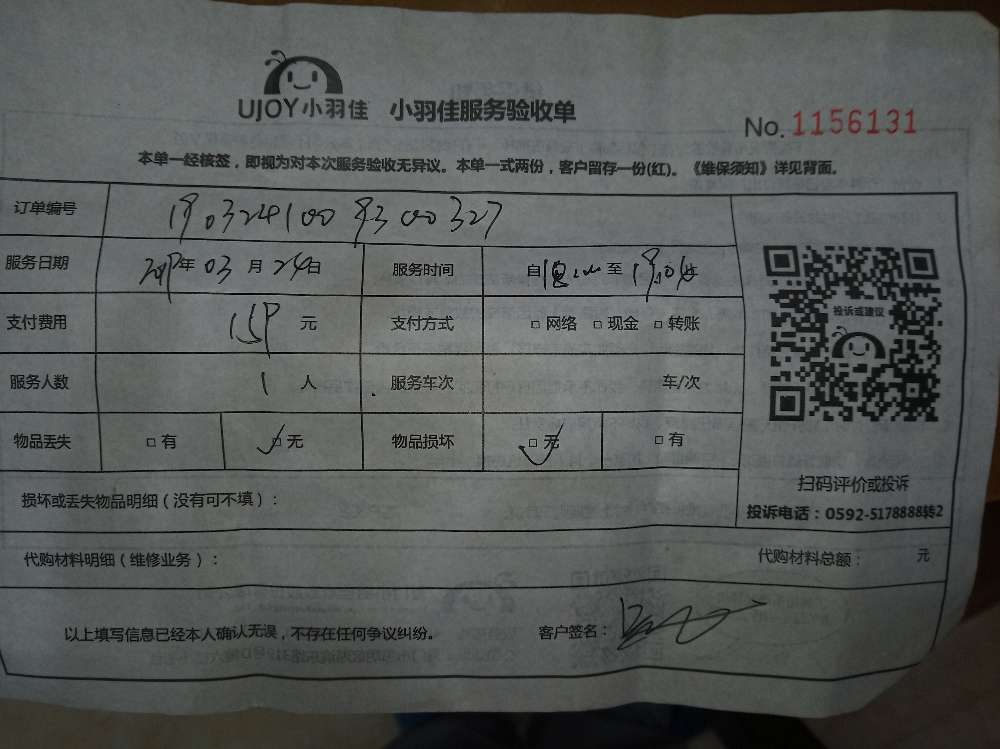 UJOY小羽佳 小羽佳服务验收单
No. 1156131
本单一经核签，即视为对本次服务验收无异议。本单一式两份，客户留存一份(红)。《维保须知》详见背面。
订单编号 1903241009300327
服务日期 2019年 03 月 24日 服务时间 自 至
支付费用 159 元 支付方式 □ 网络 □ 现金 □ 转账
投诉或建议
服务人数 1 人 服务车次 车/次
物品丢失 □ 有 □ 无 物品损坏 □ 无 □ 有
扫码评价或投诉
损坏或丢失物品明细（没有可不填）：
投诉电话：0592-5178888转2
代购材料明细（维修业务）： 代购材料总额： 元
以上填写信息已经本人确认无误，不存在任何争议纠纷。 客户签名：